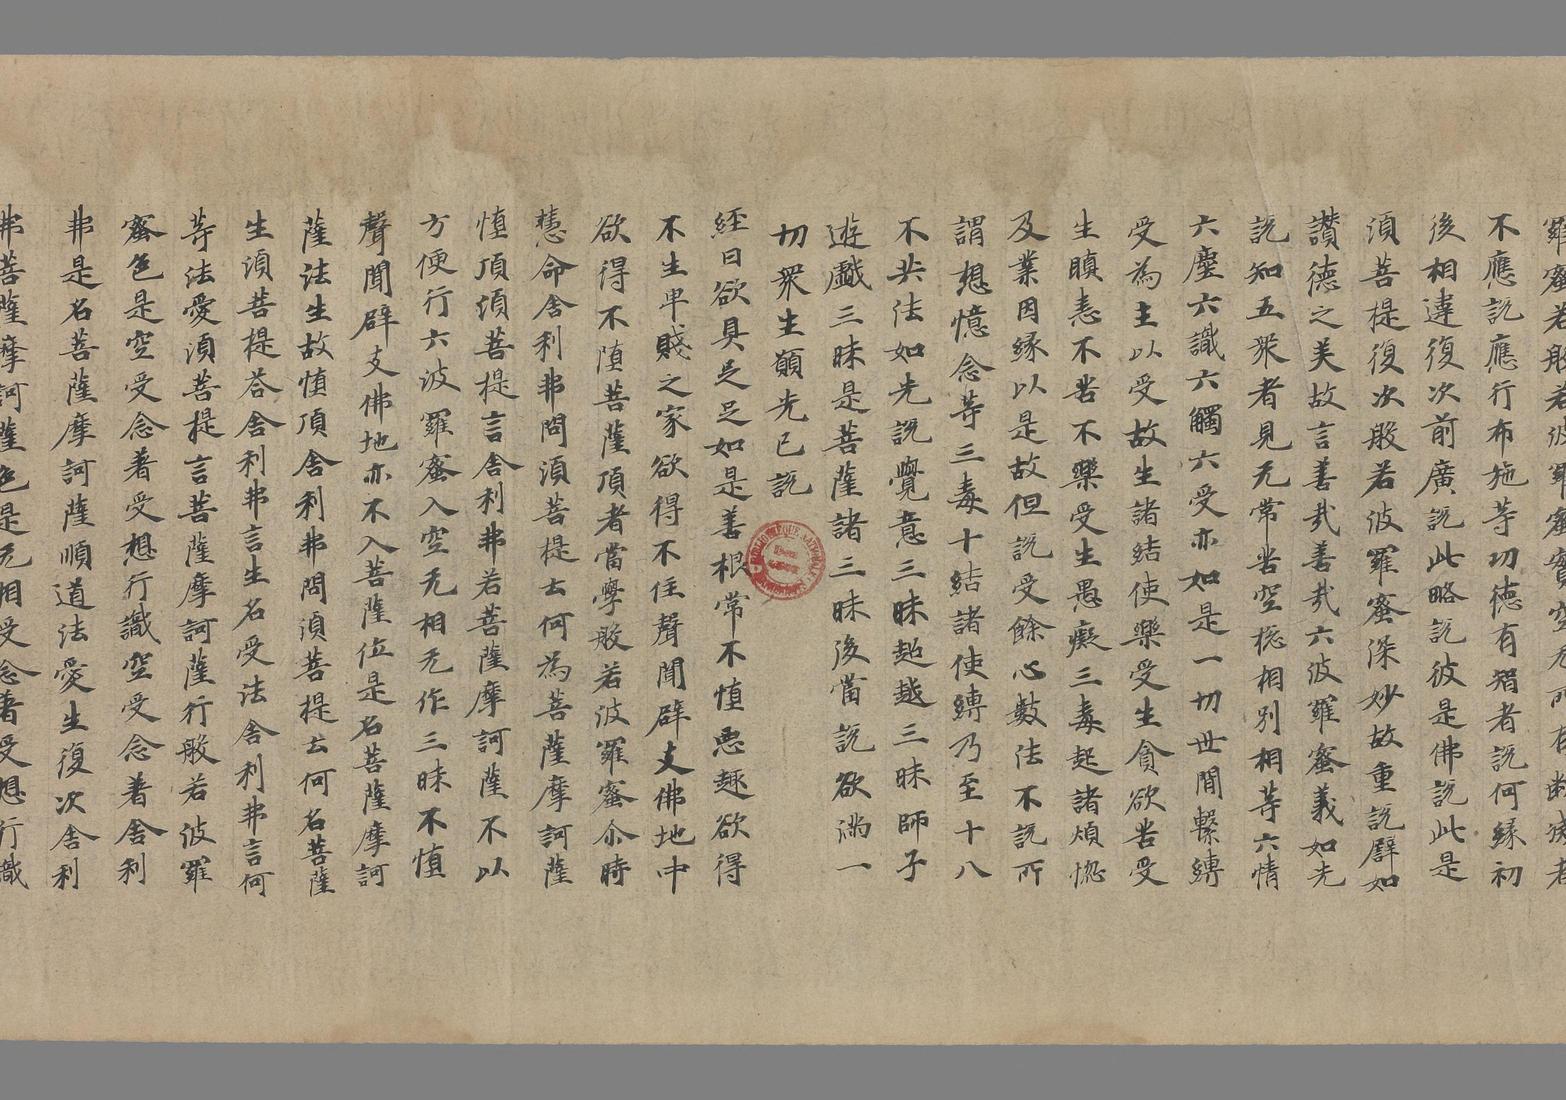 羅蜜若般若波羅蜜實空无所有斷滅者
不應說應行布施等功德有智者說何緣初
後相違復次前廣說此略說彼是佛說此是
須菩提復次般若波羅蜜深妙故重說譬如
讚德之美故言善㢤善㢤六波羅蜜義如先
說知五眾者見无常苦空捴相別相等六情
六塵六識六觸六受亦如是一切世間繫縛
受為主以受故生諸結使樂受生貪欲苦受
生瞋恚不苦不樂受生愚癡三毒起諸煩惱
及業因緣以是故但說受餘心數法不說所
謂想憶念等三毒十結諸使縛乃至十八
不共法如先說覺意三昧超越三昧師子
遊戲三昧是菩薩諸三昧後當說欲滿一
切眾生願先已說
經曰欲具足足如是善根常不墮惡趣欲得
不生卑賤之家欲得不住聲聞辟支佛地中
欲得不墮菩薩頂者當學般若波羅蜜尒時
慧命舍利弗問湏菩提云何為菩薩摩訶薩
墮頂湏菩提言舍利弗若菩薩摩訶薩不以
方便行六波羅蜜入空无相无作三昧不墮
聲聞辟支佛地亦不入菩薩位是名菩薩摩訶
薩法生故墮頂舍利弗問湏菩提云何名菩薩
生湏菩提荅舍利弗言生名受法舍利弗言何
等法愛湏菩提言菩薩摩訶薩行般若波羅
蜜色是空受念著受想行識空受念著舍利
弗是名菩薩摩訶薩順道法愛生復次舍利
弗菩薩摩訶薩色是无相受念著受想行識